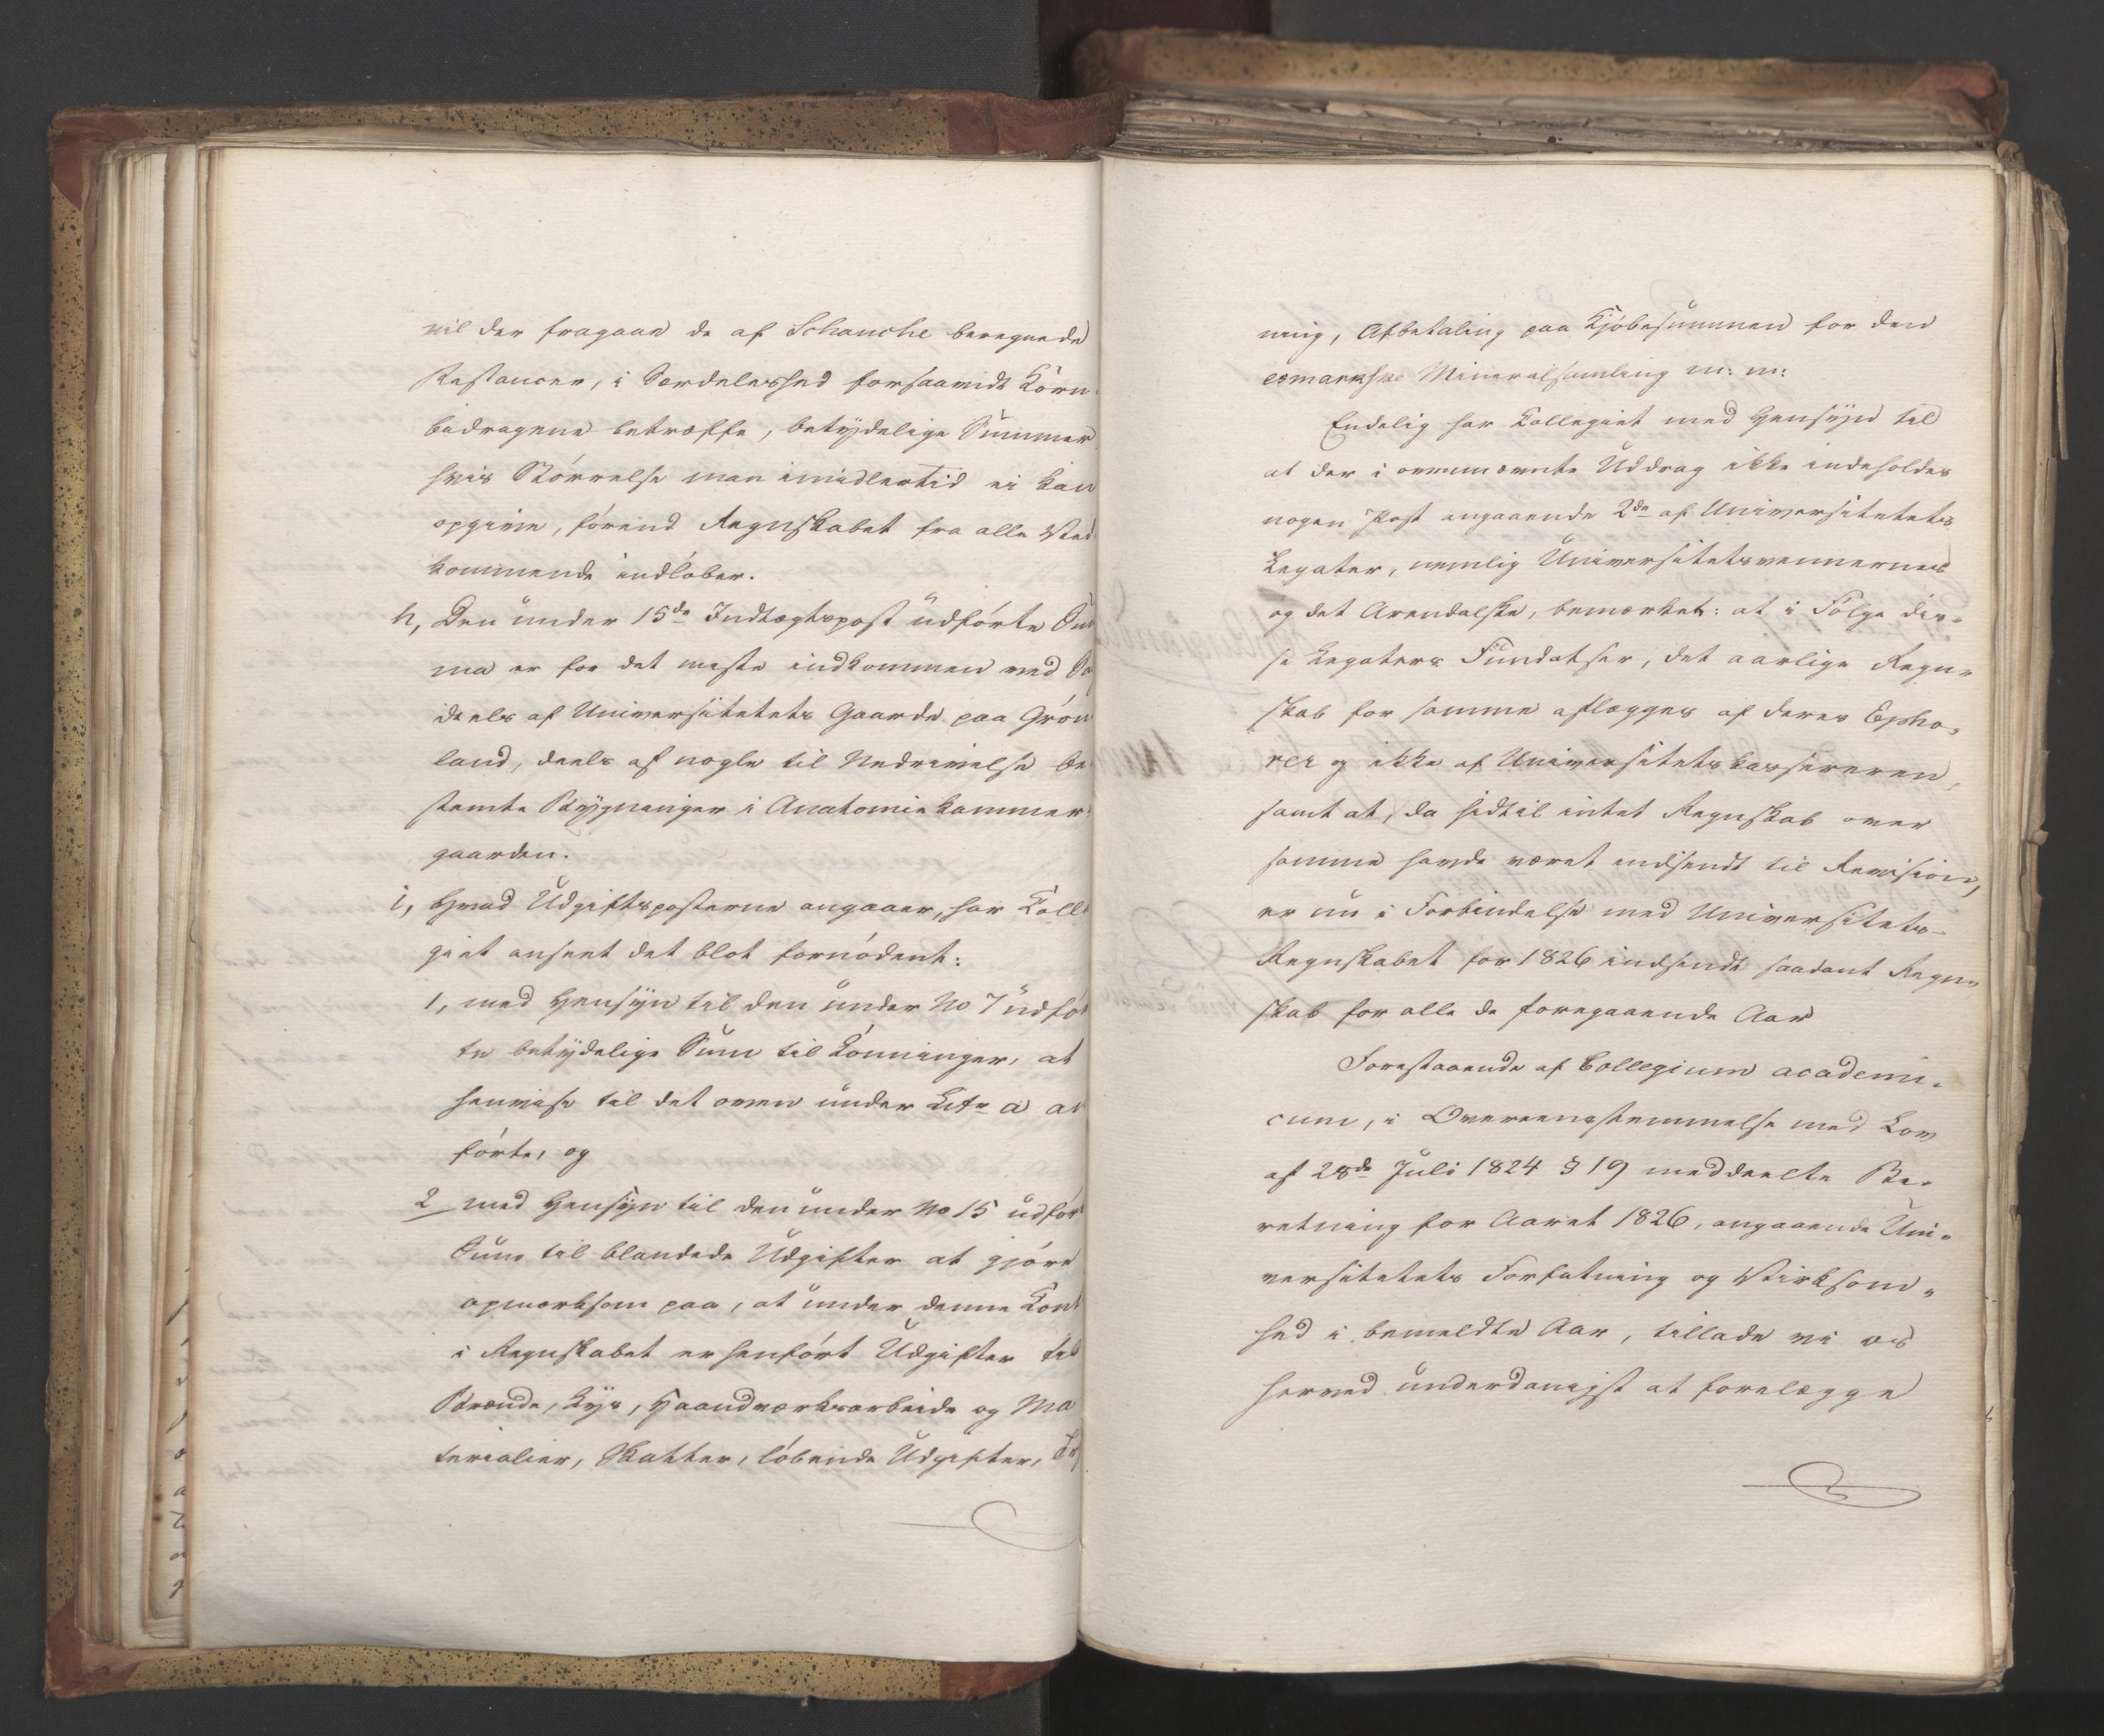 vil der fragaae de af Schanche beregnede
Restancer, i Særdeleshed forsaavidt Korn
bidragene betræffe, betydelige Summer
hvis Størrelse man imidlertid ei kan
opgive, førend Regnskabet fra alle Ved
kommende indløber.
h, Den under 15de Indtægtspost udførte Sum
ma er for det meste indkommen ved Sa
deels af Universitetets Gaarde paa Grøn
land, deels af nogle til Nedrivelse be
stemte Bygninger i Anatomiekammer
gaarden.
i, Hvad Udgiftsposterne angaaer, har Colle
giet anseet det blot fornødent:
1, med Hensyn til den under No 7 udfør
te betydelige Sum til Lønninger, at
henvise til det oven under Litr a an
førte, og
2 med Hensyn til den under No 15 udfør
Sum til blandede Udgifter at gjøre
opmærksom paa, at under denne Cont
i Regnskabet er henført Udgifter til
Brænde, Lys, Haandværksarbeide og Ma
terialier, Skatter, løbende Udgifter,
ning, Afbetaling paa Kjøbesummen for den
esmarkske Mineralsamling m: m:
Endelig har Collegiet med Hensyn til
at der i ovennævnte Uddrag ikke indeholdes
nogen Post angaaende 2de af Universitetets
Legater, nemlig Universitetsvennernes
og det Arendalske, bemærket: at i Følge dis-
se Legaters Fundatser, det aarlige Regn-
skab for samme aflægges af deres Epho-
rer og ikke af Universitetskassereren,
samt at, da hidtil intet Regnskab over
samme havde været indsendt til Revision,
er nu i Forbindelse med Universitets-
Regnskabet for 1826 indsendt saadant Regn-
skab for alle de foregaaende Aar
Forestaaende af Collegium academi-
cum, i Overeensstemmelse med Lov
af 28de Juli 1824 § 19 meddeelte Be-
retning for Aaret 1826, angaaende Uni-
versitetets Forfatning og Virksom-
hed i bemeldte Aar, tillade vi os
herved underdanigst at forelægge